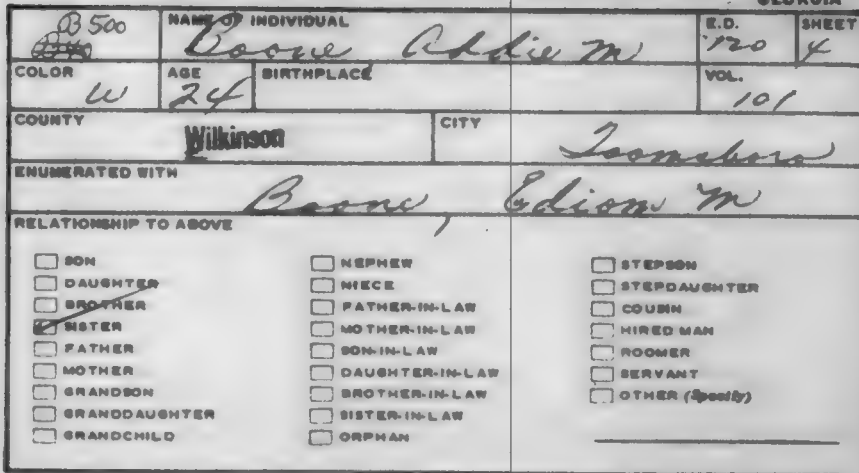 GEORGIA
B 500
NAME OF INDIVIDUAL
Boone Addie M
E.D.
120
SHEET
4
COLOR
W
AGE
24
BIRTHPLACE
VOL.
101
COUNTY
Wilkinson
CITY
Toomsboro
ENUMERATED WITH
Boone, Edison M
RELATIONSHIP TO ABOVE
SON
DAUGHTER
BROTHER
SISTER
FATHER
MOTHER
GRANDSON
GRANDDAUGHTER
GRANDCHILD
NEPHEW
NIECE
FATHER-IN-LAW
MOTHER-IN-LAW
SON-IN-LAW
DAUGHTER-IN-LAW
BROTHER-IN-LAW
SISTER-IN-LAW
ORPHAN
STEPSON
STEPDAUGHTER
COUSIN
HIRED MAN
ROOMER
SERVANT
OTHER (Specify)